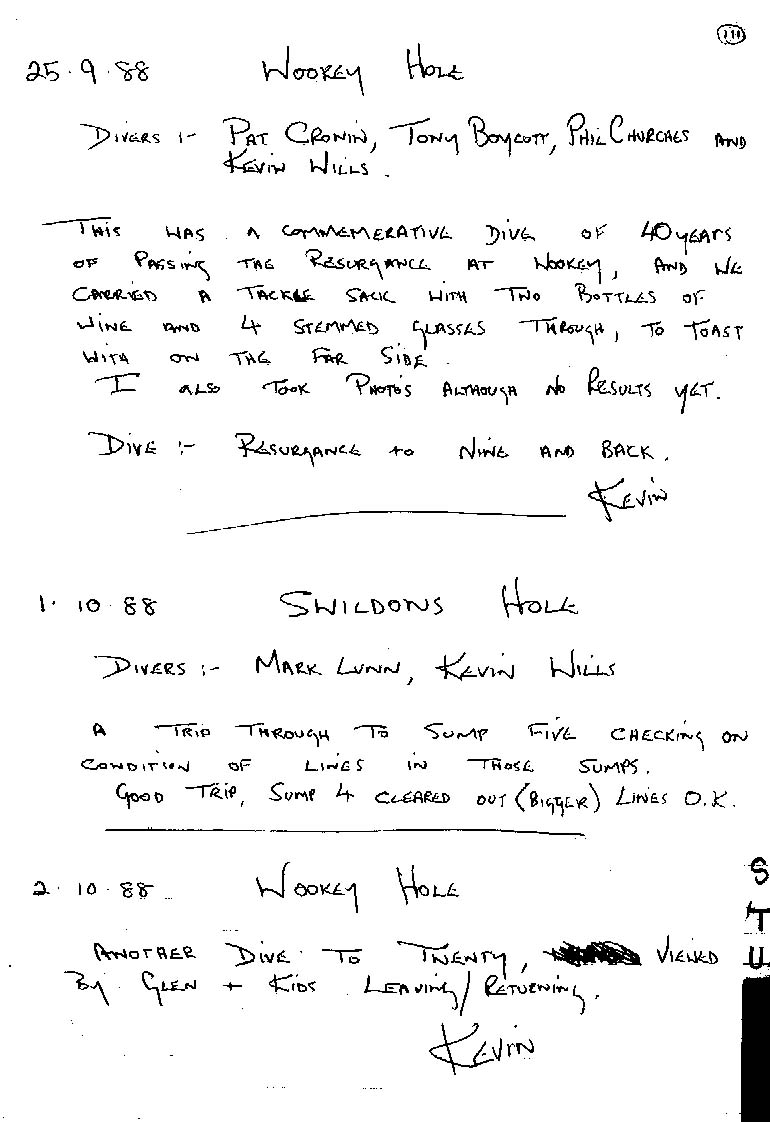 111
25.9.88 WOOKEY HOLE
DIVERS :- PAT CRONIN, TONY BOYCOTT, PHIL CHURCHES AND
KEVIN WILLS.
THIS WAS A COMMEMERATIVE DIVE OF 40 YEARS
OF PASSING THE RESURGANCE AT WOOKEY, AND WE
CARRIED A TACKLE SACK WITH TWO BOTTLES OF
WINE AND 4 STEMMED GLASSES THROUGH, TO TOAST
WITH ON THE FAR SIDE.
I ALSO TOOK PHOTO'S ALTHOUGH NO RESULTS YET.
DIVE :- RESURGANCE TO NINE AND BACK.
KEVIN
1.10.88 SWILDONS HOLE
DIVERS :- MARK LUNN, KEVIN WILLS
A TRIP THROUGH TO SUMP FIVE CHECKING ON
CONDITION OF LINES IN THOSE SUMPS.
GOOD TRIP, SUMP 4 CLEARED OUT (BIGGER) LINES O.K.
2.10.88 WOOKEY HOLE
ANOTHER DIVE TO TWENTY, VIEWED
BY GLEN + KIDS LEAVING/RETURNING.
KEVIN
S
T
U